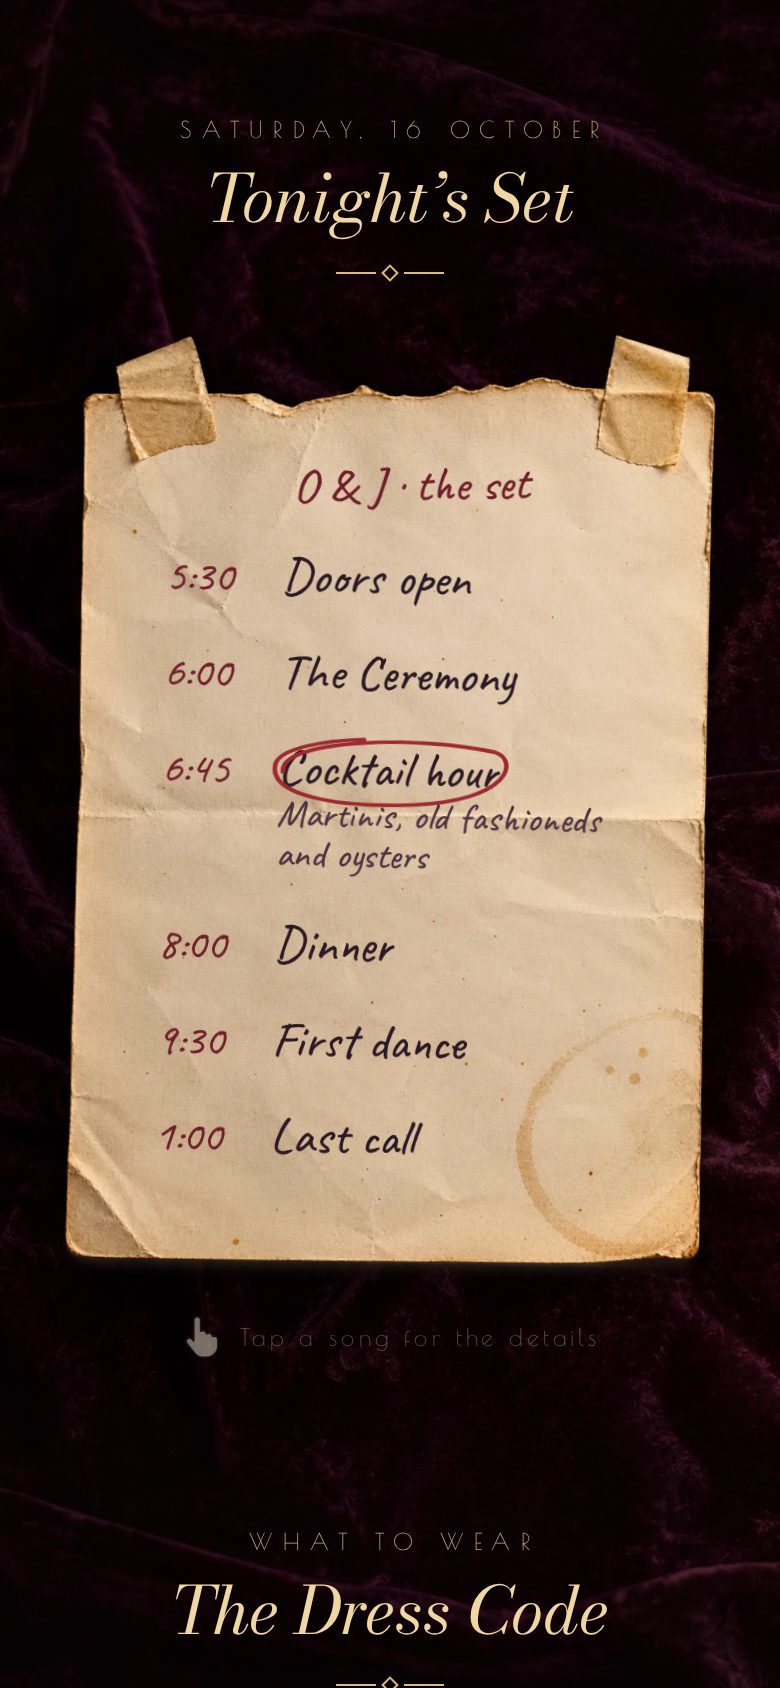 SATURDAY, 16 OCTOBER
Tonight’s Set
O & J · the set
5:30 Doors open
6:00 The Ceremony
6:45 Cocktail hour
Martinis, old fashioneds
and oysters
8:00 Dinner
9:30 First dance
1:00 Last call
Tap a song for the details
WHAT TO WEAR
The Dress Code